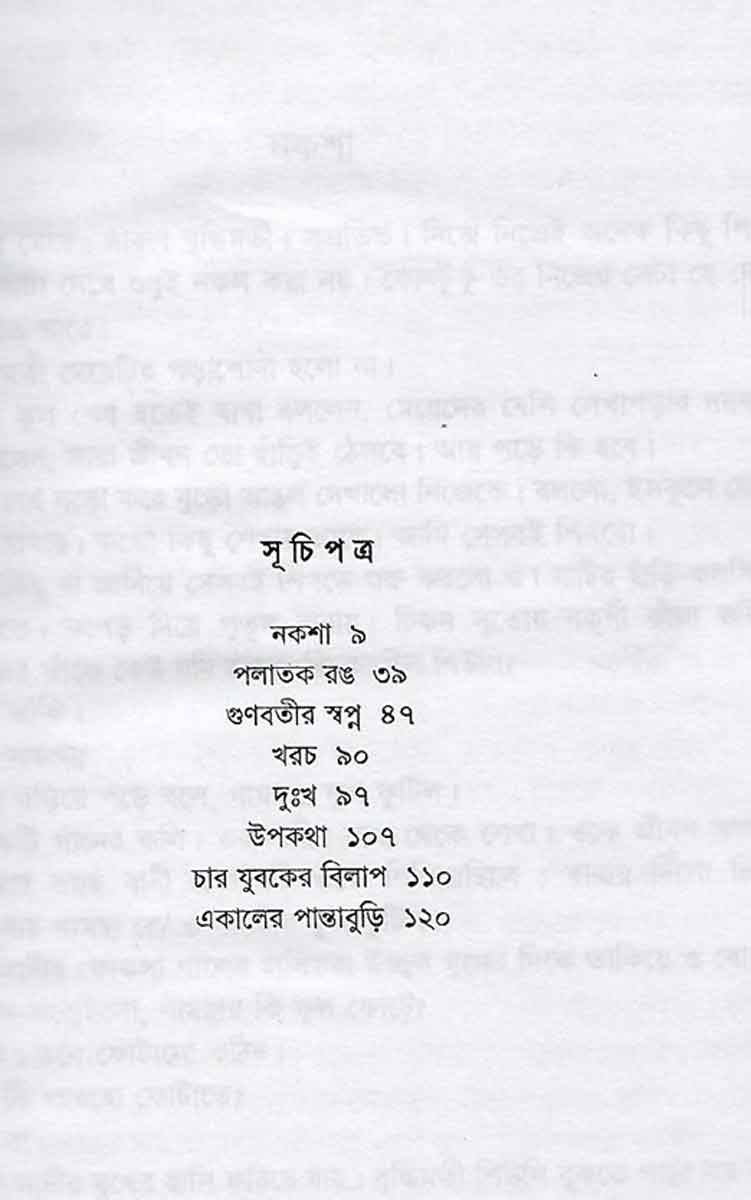 সূচিপত্র
নকশা ৯
পলাতক রঙ ৩৯
গুণবতীর স্বপ্ন ৪৭
খরচ ৯০
দুঃখ ৯৭
উপকথা ১০৭
চার যুবকের বিলাপ ১১০
একালের পান্তাবুড়ি ১২০